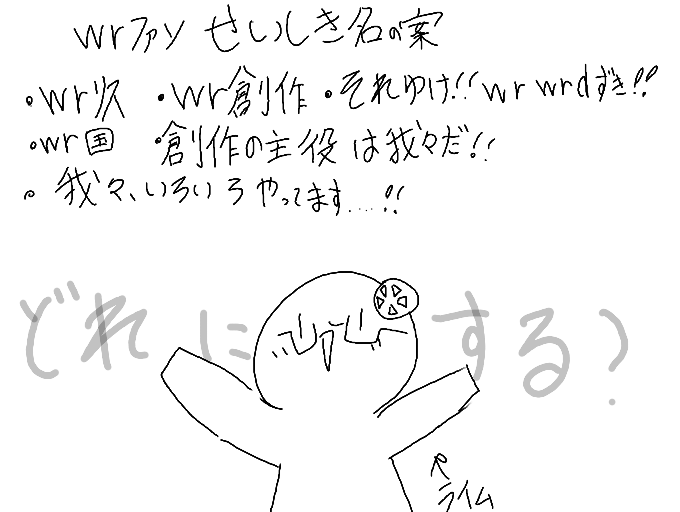 wrファン せいしき名の案
・wr界 ・wr創作 ・それゆけ!!wr wrdずき!!
・wr国 ・創作の主役は我々だ!!
・我々、いろいろやってます....!!
どれにする?
ライム